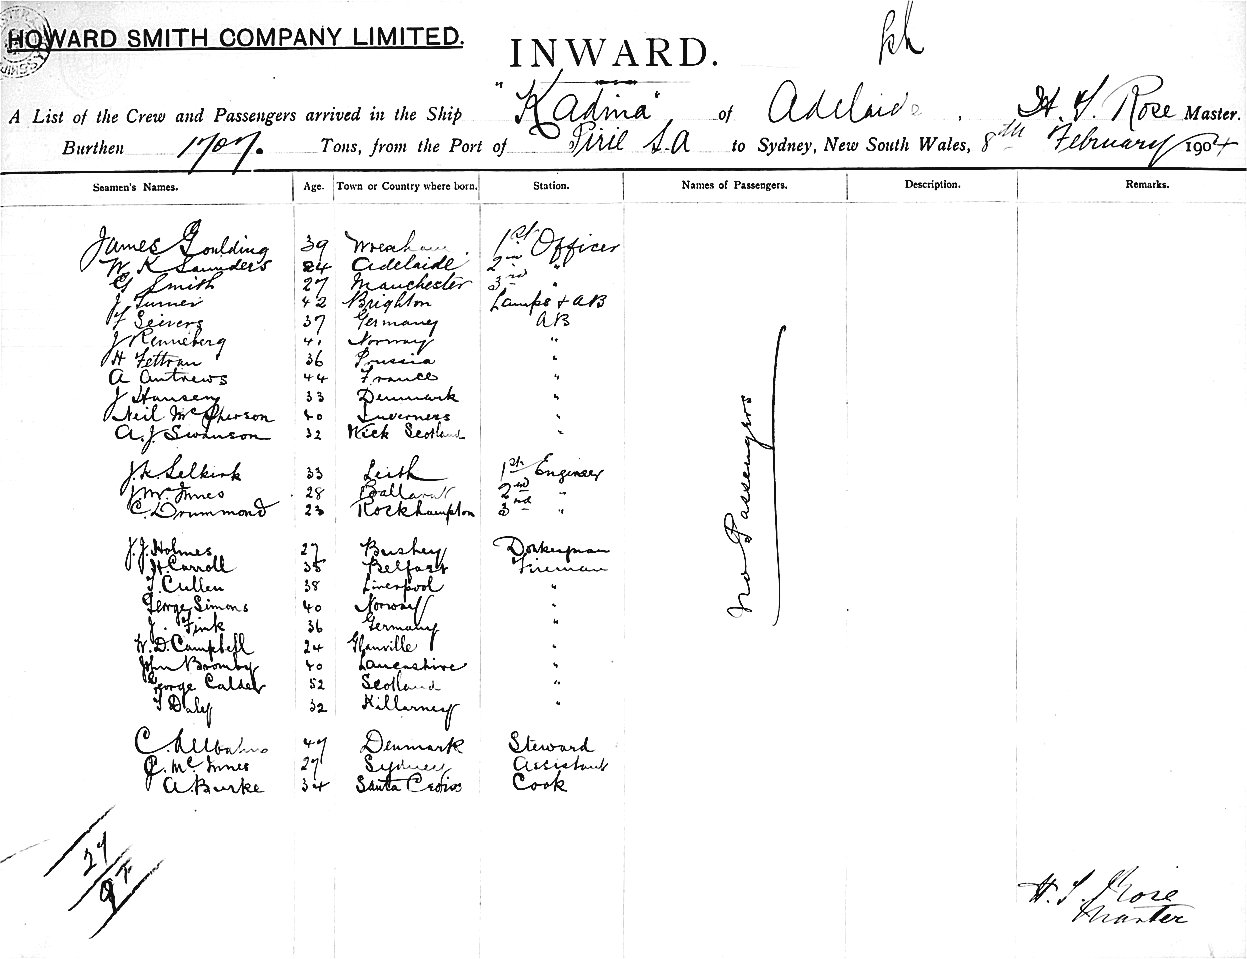 HOWARD SMITH COMPANY LIMITED.
INWARD.
A List of the Crew and Passengers arrived in the Ship "Kadina" of Adelaide, H. S. Rose Master.
Burthen 1707. Tons, from the Port of Pirie S.A to Sydney, New South Wales, 8th February 1904
Seamen's Names. Age. Town or Country where born. Station. Names of Passengers. Description. Remarks.
James Goulding 39 1st Officer
W K Saunders 24 Adelaide 2nd "
G Smith 27 Manchester 3rd "
J Turner 42 Brighton Lamps + AB
Seivers 37 Germany AB
J Renneberg 41 Norway "
H Fettrau 36 Prussia "
A Antrews 44 France "
J Hansen 33 Denmark "
Neil McPherson 40 Inverness "
A. J. Swanson 32 Wick Scotland "
J. K. Selkirk 33 Leith 1st Engineer
J McInnes 28 Ballarat 2nd "
C. Drummond 23 Rockhampton 3rd "
J. J. Holmes 27 Bushey Donkeyman
H. Carroll 35 Belfast Fireman
T. Cullen 38 Liverpool "
George Simons 40 Norway "
J. Fink 36 Germany "
W. D. Campbell 24 Glanville "
John Bromby 40 Lancashire "
George Calder 52 Scotland "
T Daly 32 Killarney "
C. 47 Denmark Steward
McInnes 27 Sydney Assistant
A Burke 34 Santa Cook
No Passengers
27
H. S. Rose
Master